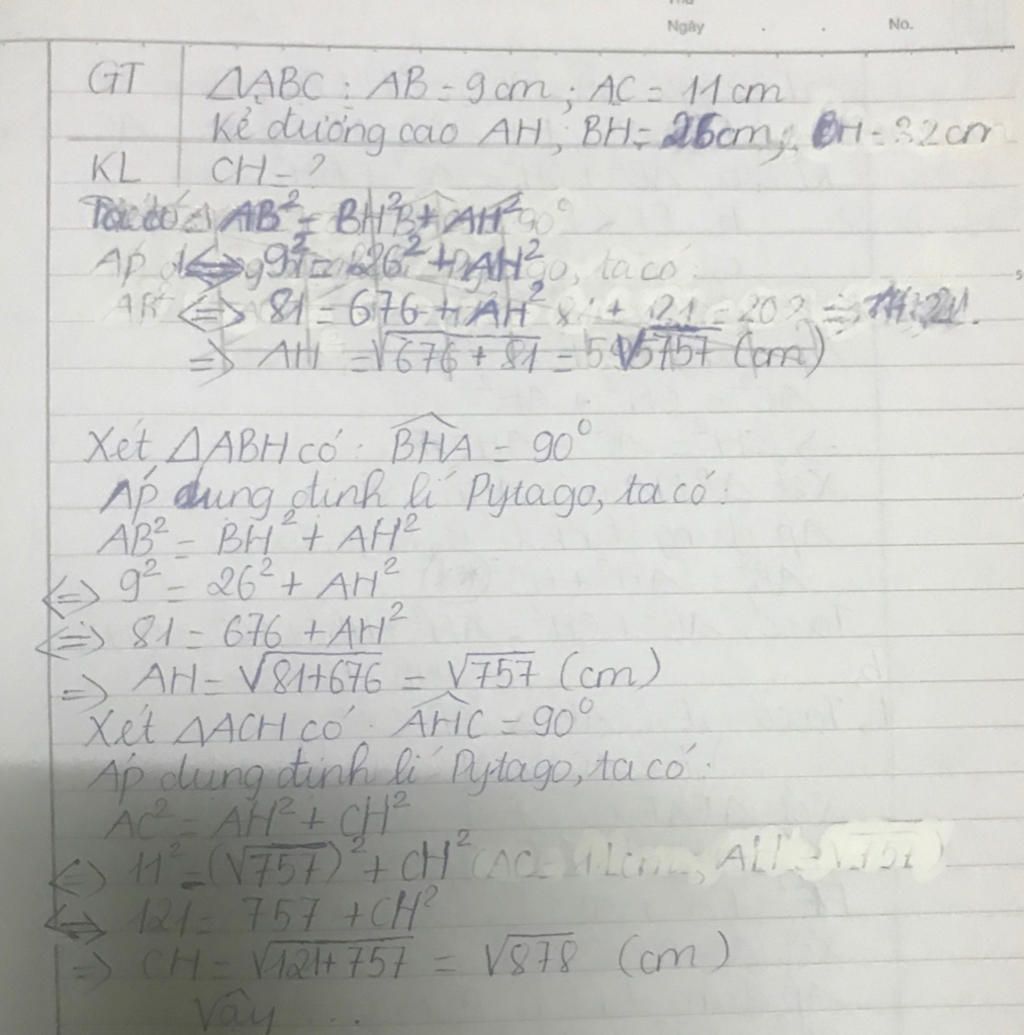 Ngày No.
GT ΔABC : AB = 9cm ; AC = 11 cm
Kẻ đường cao AH, BH = 26cm; BH = 3,2 cm
KL CH = ?
AB² = BH² + AH² 90°
Áp <=> 9² = 26² + AH² go, ta có :
<=> 81 = 676 + AH² 81 + 121 = 202 =>
=> AH = √676 + 81 = √757 (cm)
Xét ΔABH có : BHA = 90°
Áp dụng định lí Pytago, ta có :
AB² = BH² + AH²
<=> 9² = 26² + AH²
<=> 81 = 676 + AH²
=> AH = √81+676 = √757 (cm)
Xét ΔACH có : AHC = 90°
Áp dụng định lí Pytago, ta có :
AC² = AH² + CH²
<=> 11² = (√757)² + CH² (AC = 11cm, AH = √757)
<=> 121 = 757 + CH²
=> CH = √121+757 = √878 (cm)
Vậy ...